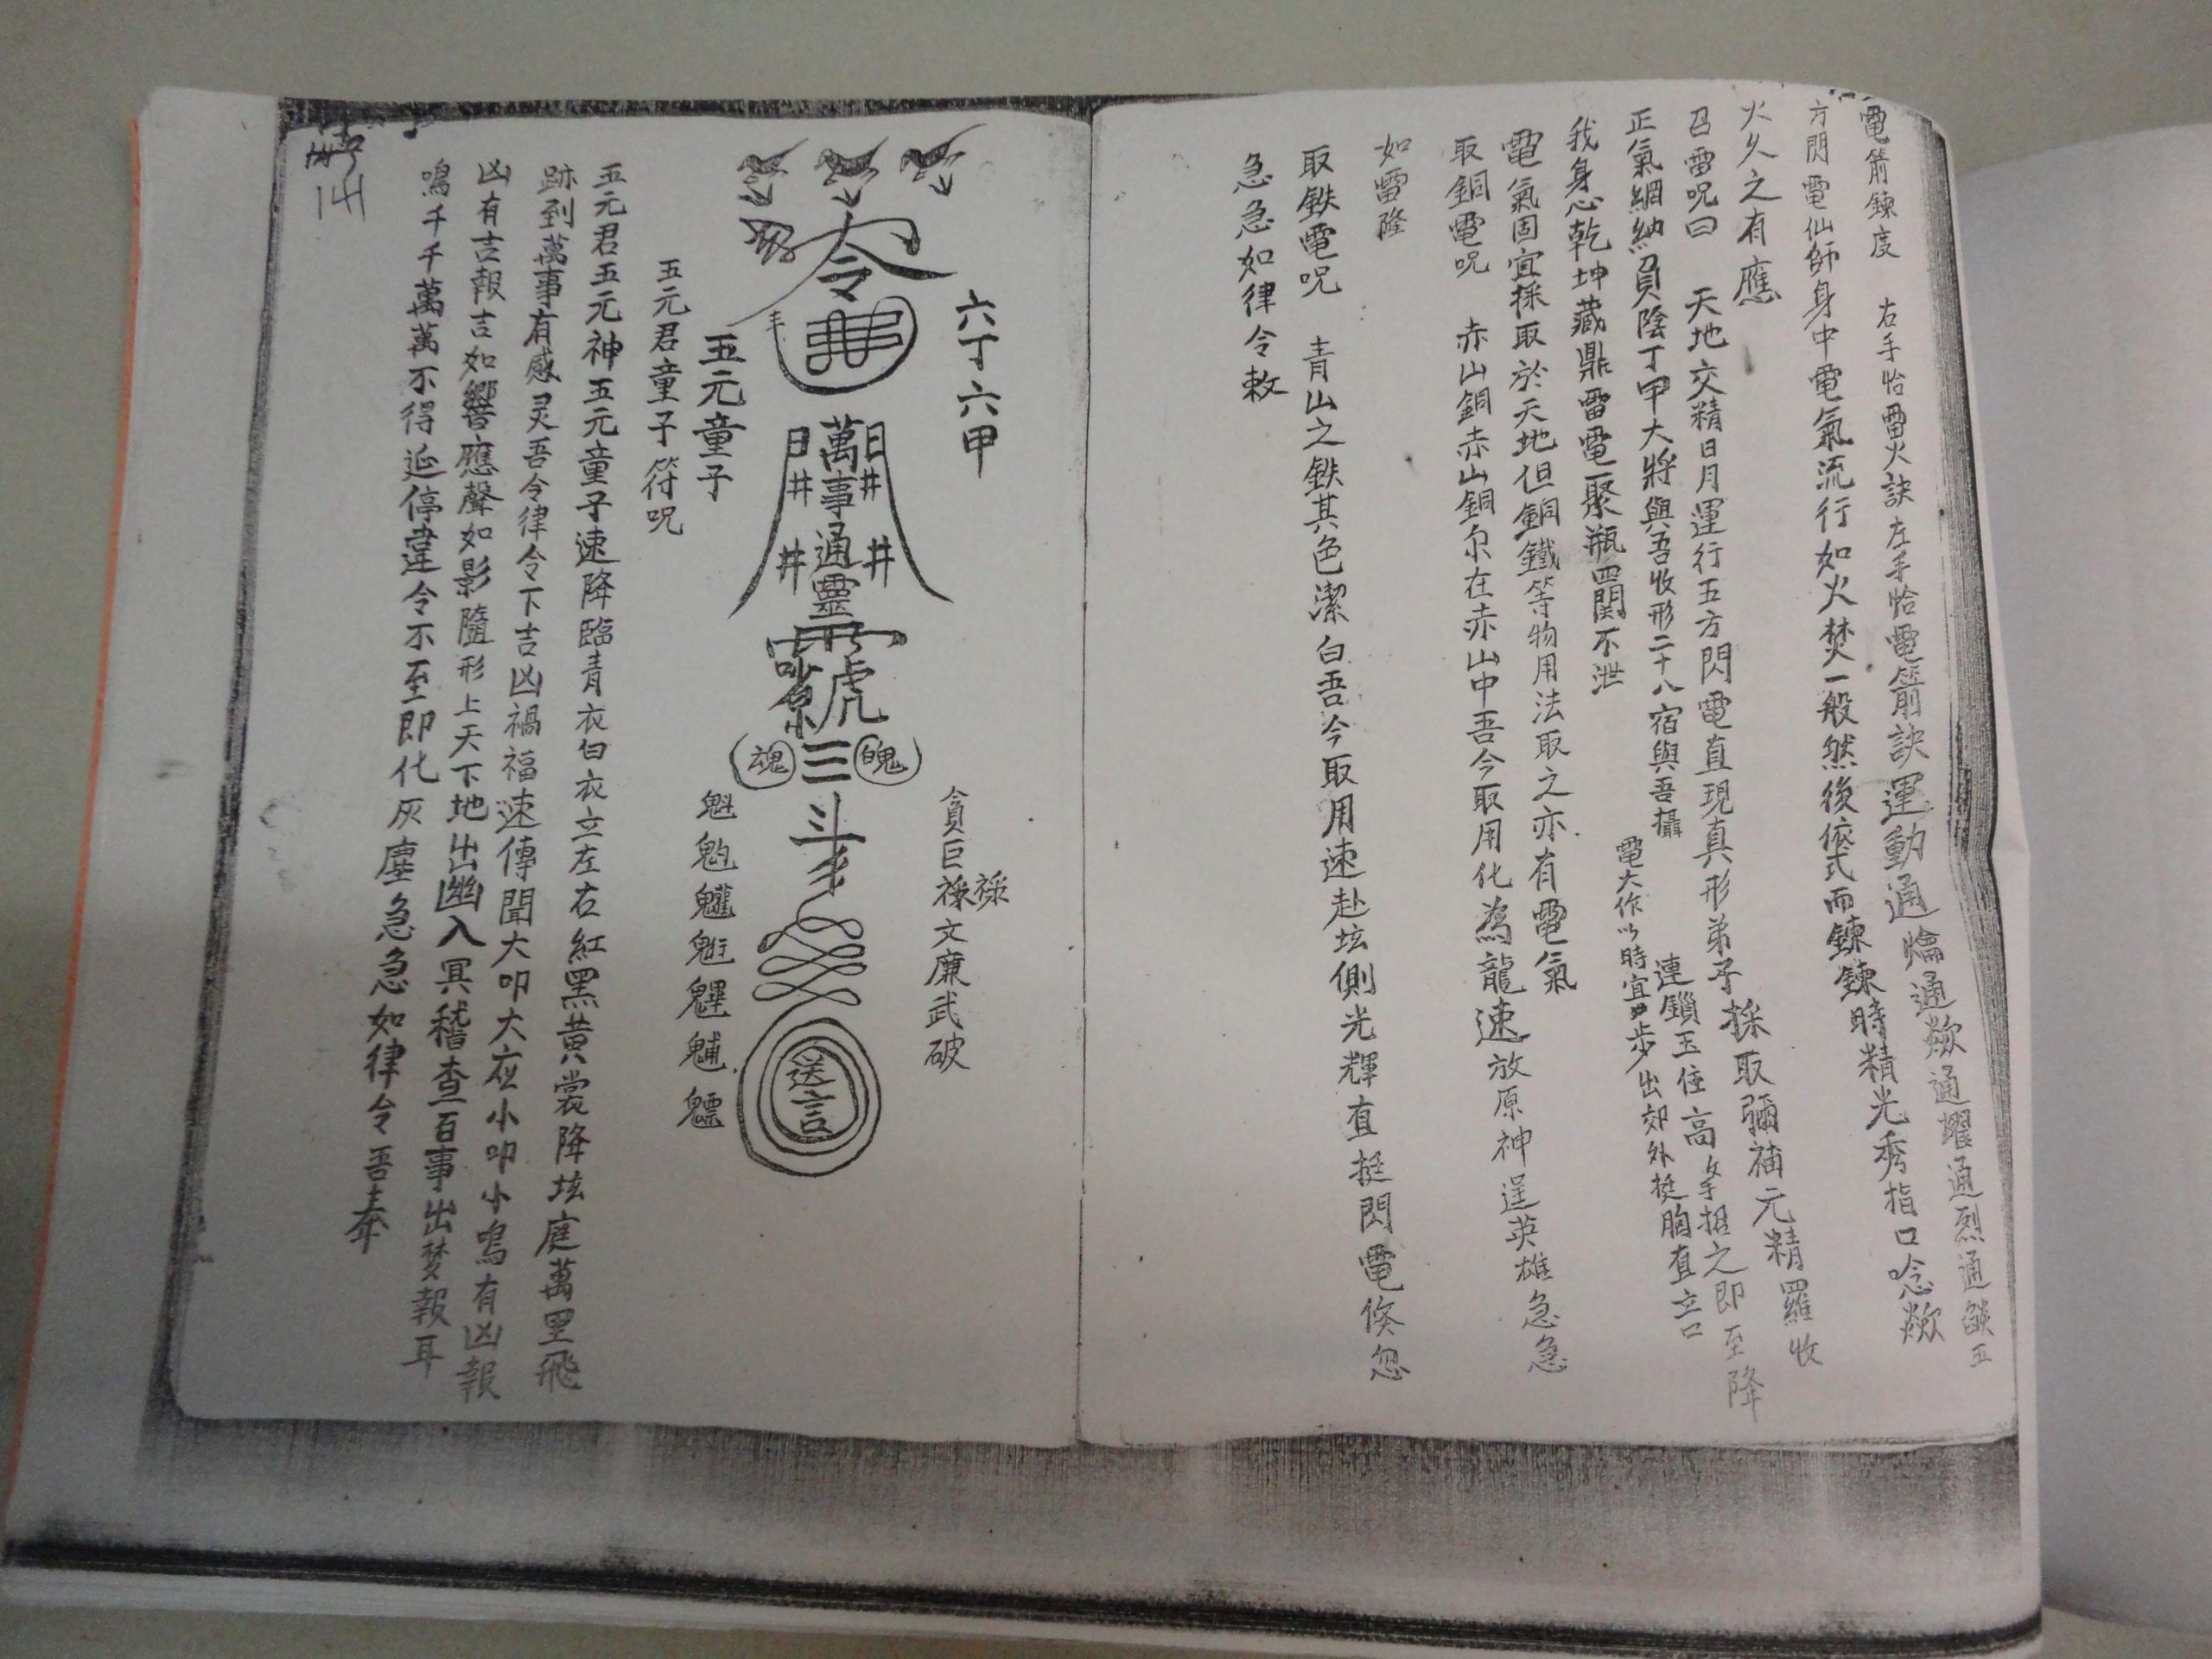 電箭鍊度　右手恰雷火訣左手恰電箭訣運動通爚通歘通耀通烈通燄五
方閃電仙師身中電氣流行如火焚一般然後依式而鍊鍊時精光秀指口唸歘
火久之有應
召雷呪曰　天地交精日月運行五方閃電直現真形弟子採取彌補元精羅收
正氣網納負陰丁甲大將與吾收形二十八宿與吾攝
連鎖玉住高手招之即至降
電大作以時宜步出郊外挺胸直立口
我身心乾坤藏鼎雷電一聚瓶罌閉不泄
電氣固宜採取於天地但銅鐵等物用法取之亦有電氣
取銅電呪　赤山銅赤山銅尔在赤山中吾今取用化為龍速放原神逞英雄急急
如雷隆
取鉄電呪　青山之鉄其色潔白吾今取用速赴坛側光輝直挺閃電倏忽
急急如律令敕
六丁六甲
貪巨祿文廉武破
祿
令
萬事通靈
日井井
日井井
虎
魂三魄
斗
送言
五元童子
魁𩲃䰢魓魒
五元君童子符呪
五元君五元神五元童子速降臨青衣白衣立左右紅黑黃裳降坛庭萬里飛
跡到萬事有感灵吾今律令下吉凶禍福速傳聞大叩大应小叩小鳴有凶報
凶有吉報吉如響應聲如影隨形上天下地出幽入冥稽查百事出梦報耳
鳴千千萬萬不得延停違令不至即化灰塵急急如律令吾奉
141